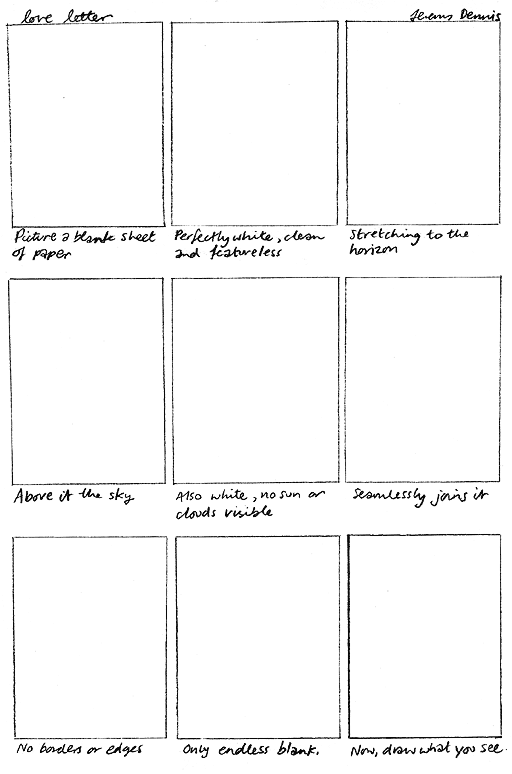 love letter
Jeremy Dennis
Picture a blank sheet
of paper
Perfectly white, clean
and featureless
Stretching to the
horizon
Above it the sky
Also white, no sun or
clouds visible
Seamlessly joins it
No borders or edges
Only endless blank.
Now, draw what you see.